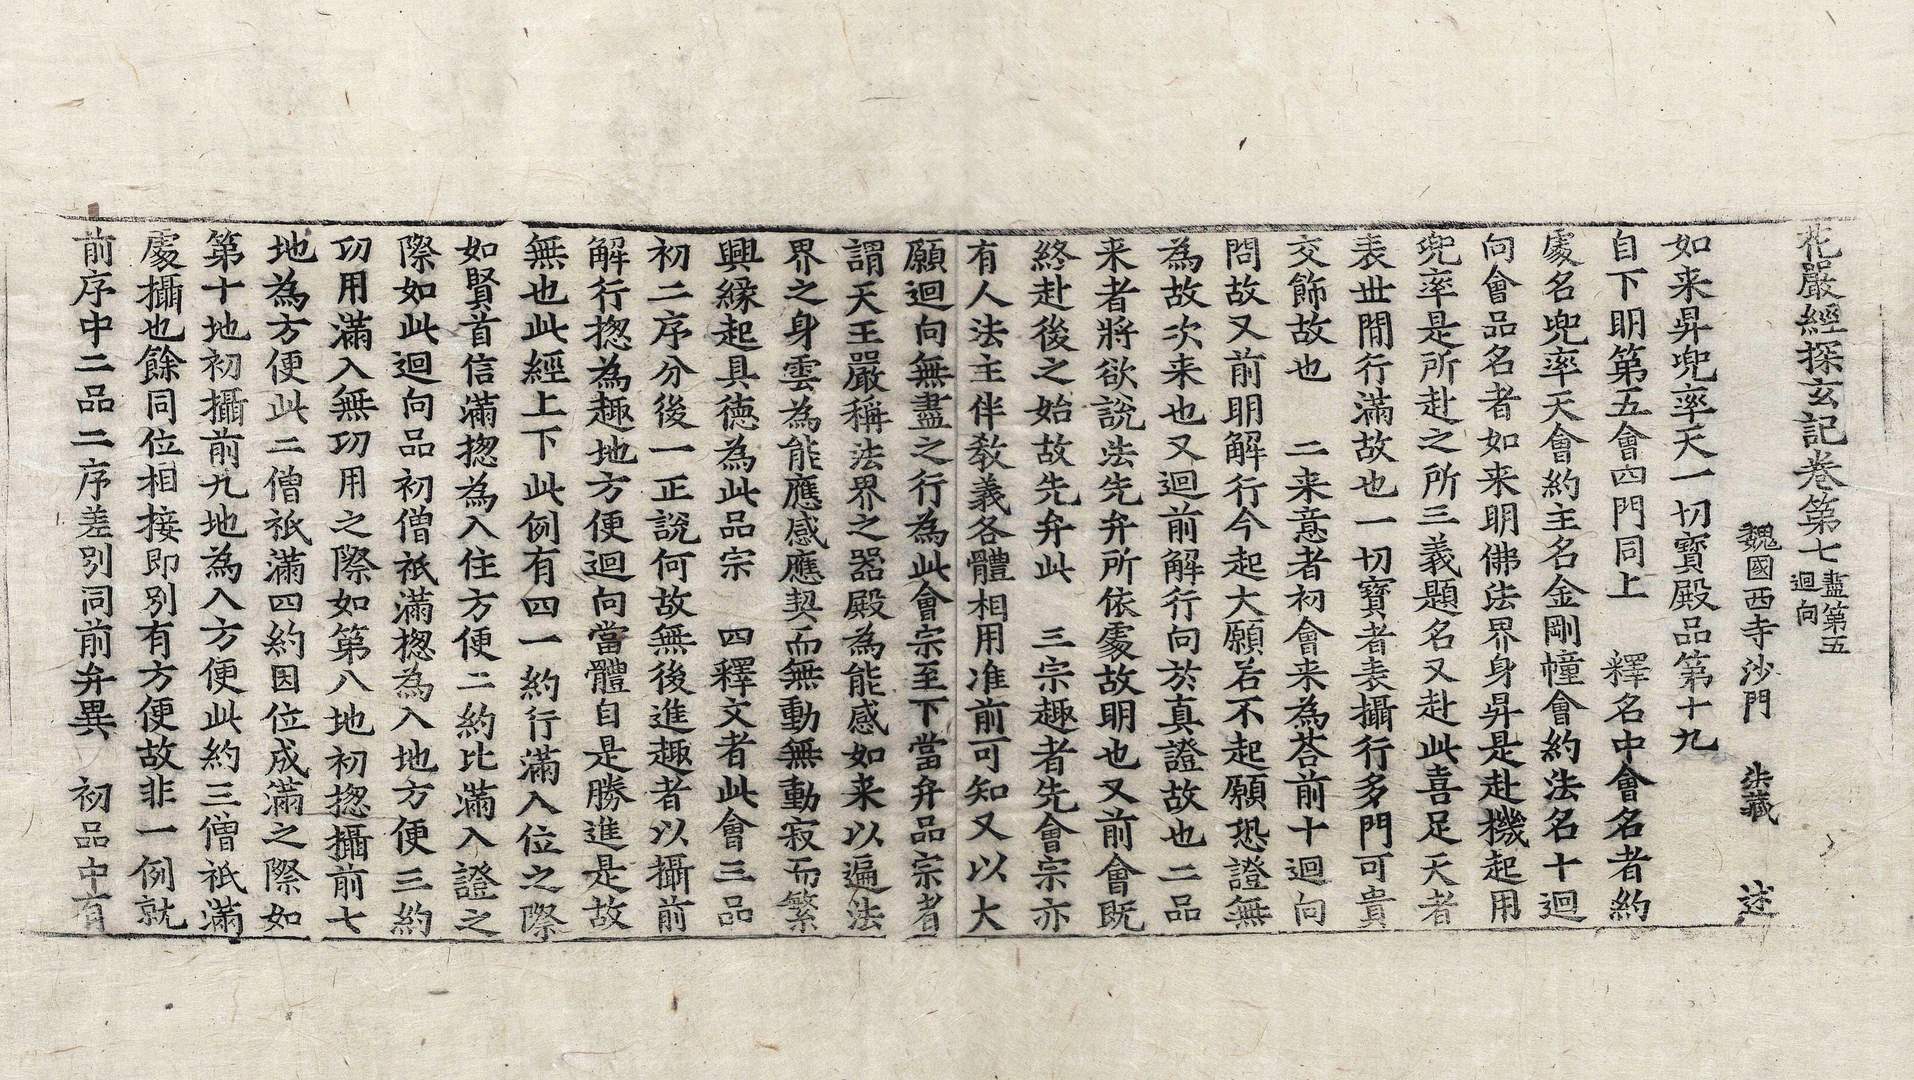 花嚴經探玄記卷第七盡第五迴向
魏國西寺沙門　法藏　述
如来昇兜率天一切寳殿品第十九
自下明第五會四門同上　釋名中會名者約
處名兜率天會約主名金剛幢會約法名十迴
向會品名者如来明佛法界身昇是赴機起用
兜率是所赴之所三義題名又赴此喜足天者
表世間行滿故也一切寳者表攝行多門可貴
交飾故也　二来意者初會来為荅前十迴向
問故又前明解行今起大願若不起願恐證無
為故次来也又迴前解行向於真證故也二品
来者將欲說法先弁所依處故明也又前會既
終赴後之始故先弁此　三宗趣者先會宗亦
有人法主伴教義各體相用准前可知又以大
願迴向無盡之行為此會宗至下當弁品宗者
謂天王嚴稱法界之器殿為能感如来以遍法
界之身雲為能應感應契而無動無動寂而繁
興緣起具德為此品宗　四釋文者此會三品
初二序分後一正說何故無後進趣者以攝前
解行揔為趣地方便迴向當體自是勝進是故
無也此經上下此例有四一約行滿入位之際
如賢首信滿揔為入住方便二約比滿入證之
際如此迴向品初僧祇滿揔為入地方便三約
功用滿入無功用之際如第八地初揔攝前七
地為方便此二僧祇滿四約因位成滿之際如
第十地初攝前九地為入方便此約三僧祇滿
處攝也餘同位相接即別有方便故非一例就
前序中二品二序差別同前弁異　初品中有